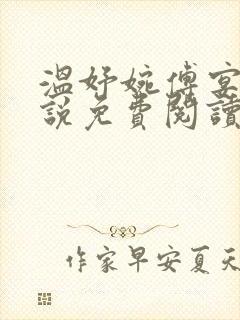 溫妤婉傅宴
說免費閱讀
作家早安夏天